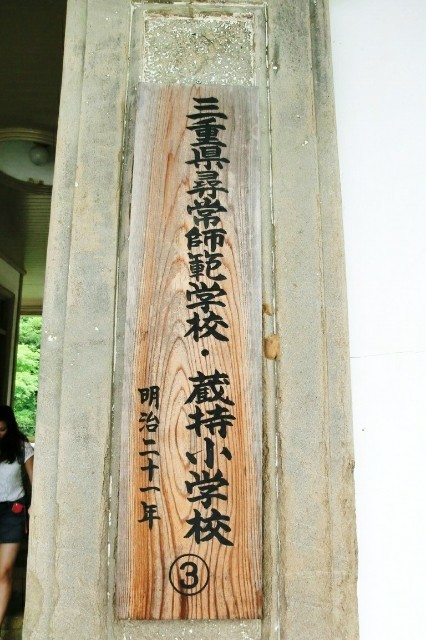 三重県尋常師範学校・蔵持小学校
明治二十一年
③